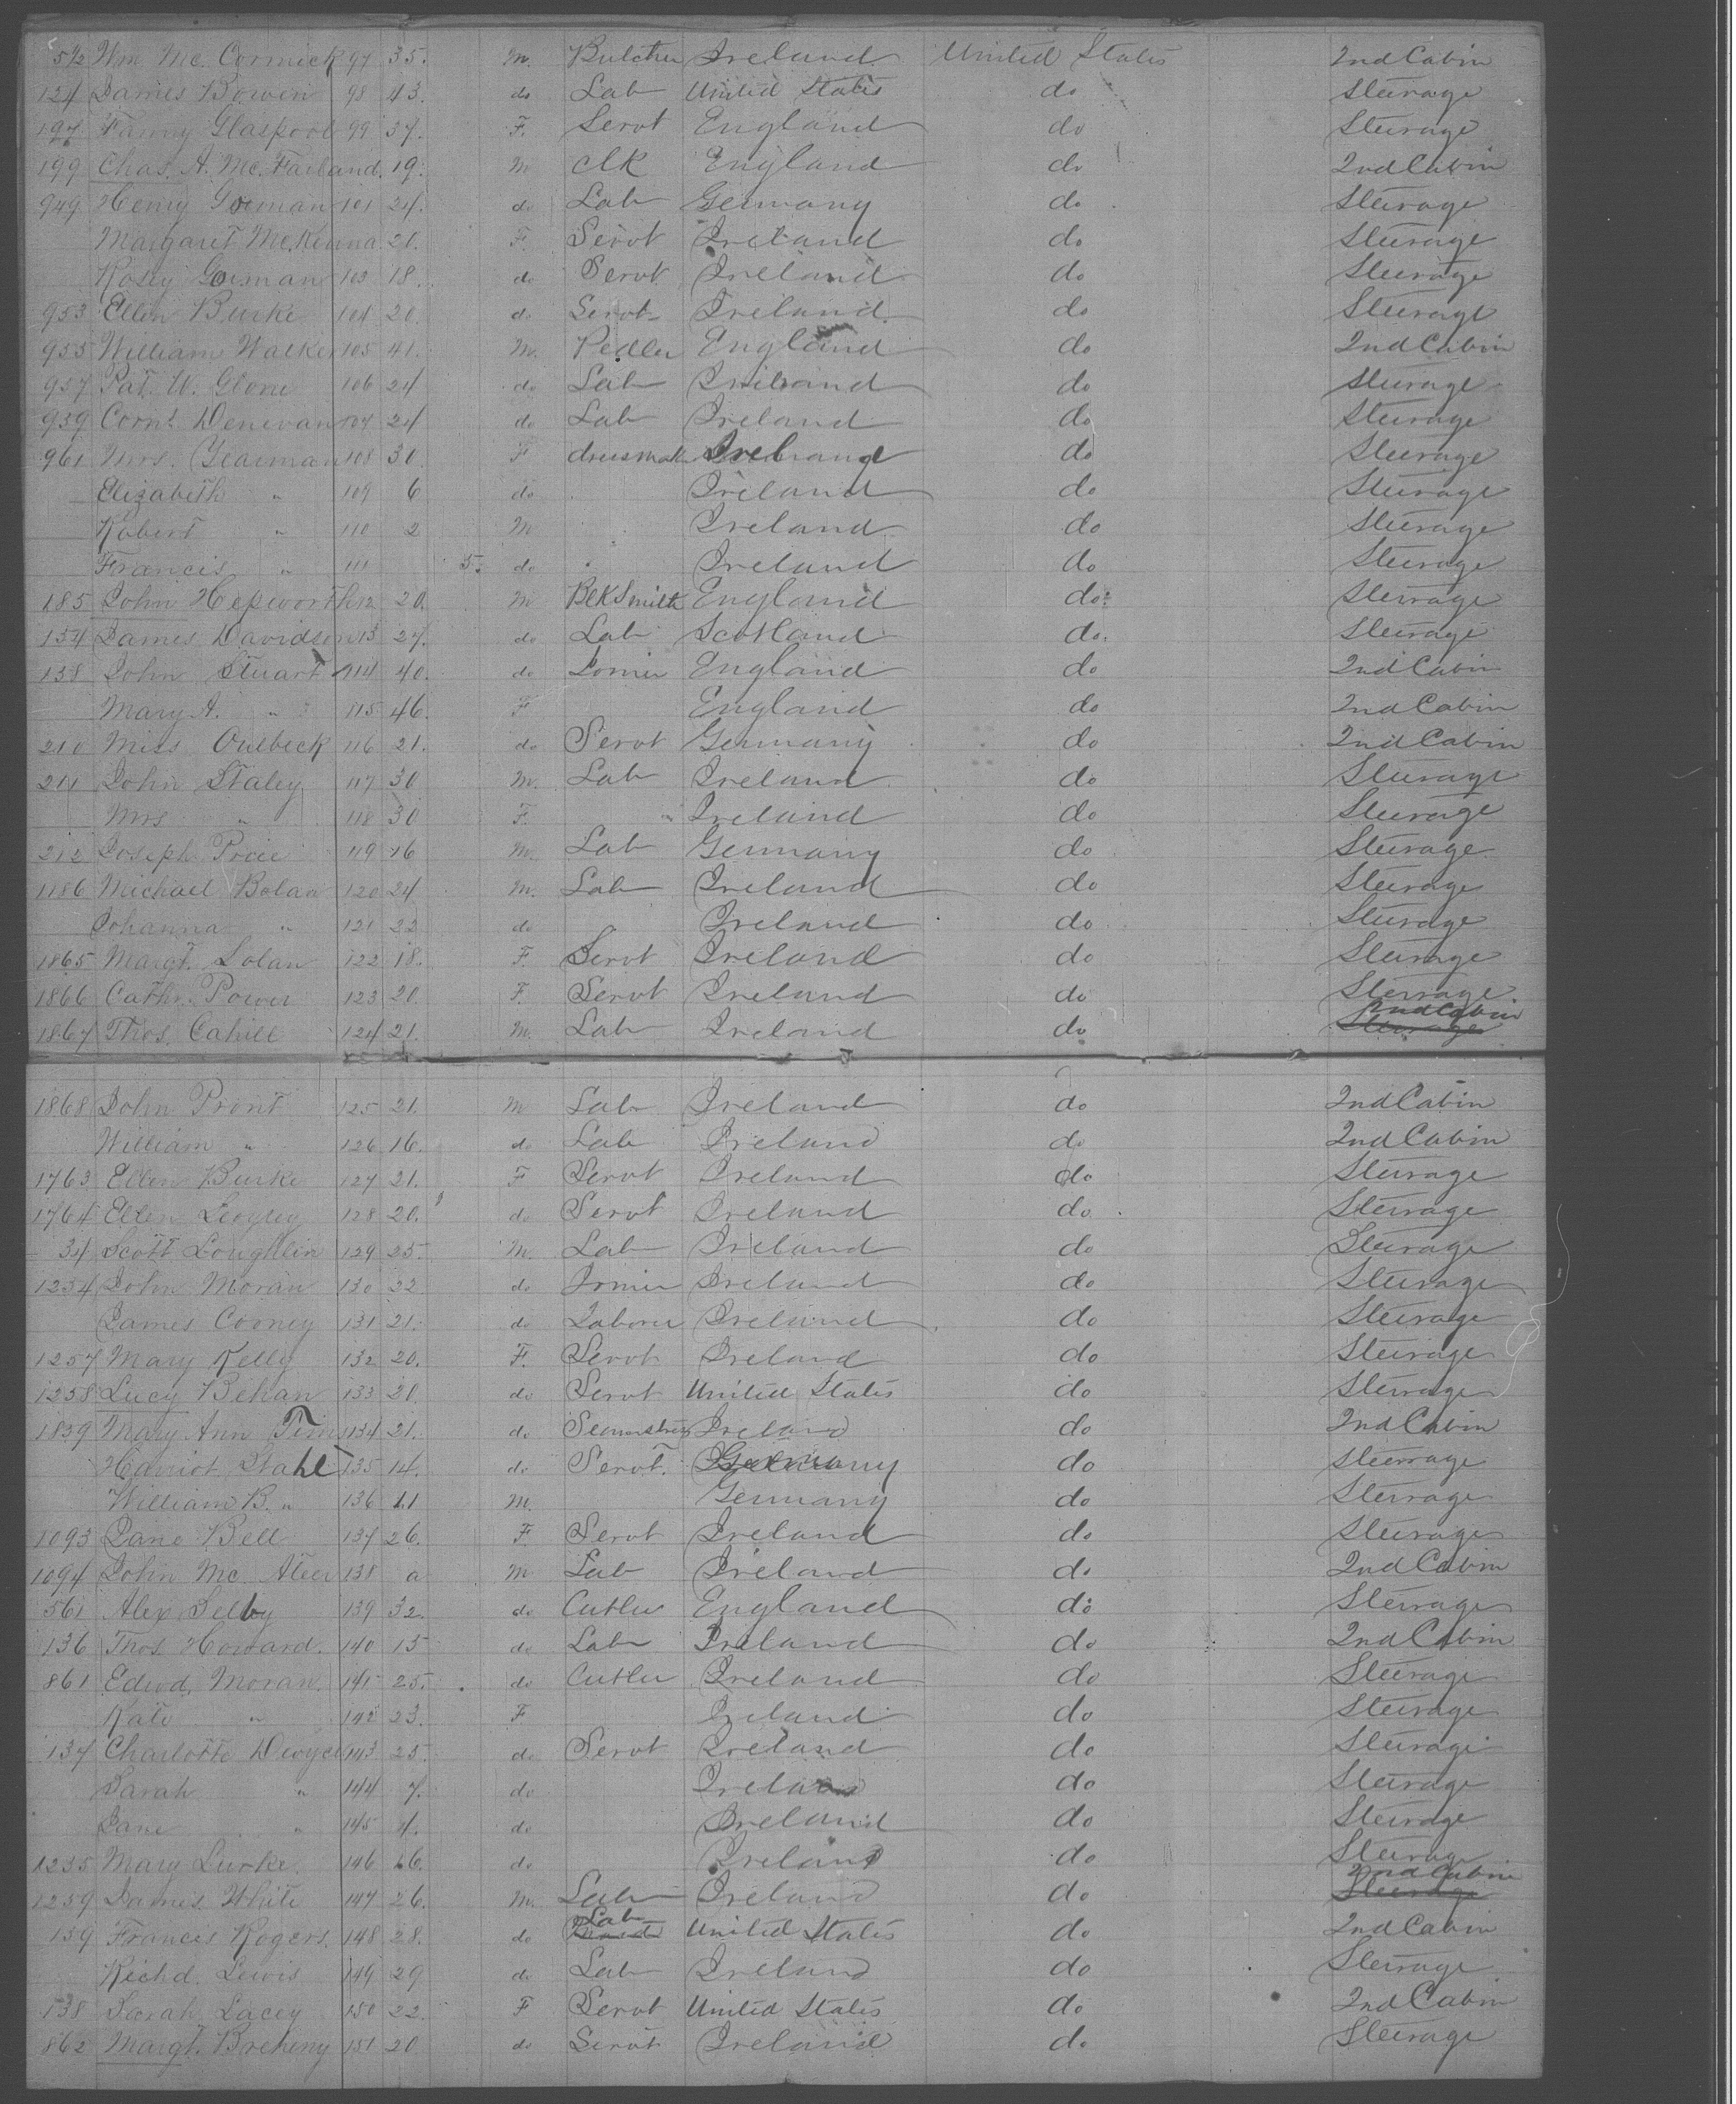 5½ Wm Mc. Cormick 97 35. M. Butcher Ireland United States 2nd Cabin
124 James Bowen 98 43. do Lab United States do Steerage
197 Fanny Glaspool 99 37. F. Servt England do Steerage
199 Chas. A. Mc. Farland. 19. M Clk England do 2nd Cabin
949 Henry Gorman 101 24. do Lab Germany do Steerage
Margaret McKenna 20. F. Servt Ireland do Steerage
Rosey Gorman 103 18. do Servt Ireland do Steerage
953 Ellen Burke 104 20. do Servt Ireland do Steerage
955 William Walker 105 41. M. Pedler England do 2nd Cabin
957 Pat. W. 106 24 do Lab Ireland do Steerage
959 Corn's Denevan 107 24 do Lab Ireland do Steerage
961 Mrs. Yearman 108 30 F dressmak Ireland do Steerage
Elizabeth " 109 6 do Ireland do Steerage
Robert " 110 2 M Ireland do Steerage
Francis " 111 5. do Ireland do Steerage
185 John Hepworth 112 20. M BlkSmith England do Steerage
154 James Davidson 113 27. do Lab Scotland do. Steerage
138 John Stuart 114 40. do England do 2nd Cabin
Mary A. " 115 46. F England do 2nd Cabin
210 Miss Oulbeck 116 21. do Servt Germany do 2nd Cabin
211 John Staley 117 30 M. Lab Ireland do Steerage
Mrs " 118 30 F. " Ireland do Steerage
212 Joseph 119 16 M. Lab Germany do Steerage
1186 Michael Bolan 120 24 M. Lab Ireland do Steerage
Johanna " 121 22 do Ireland do Steerage
1865 Margt. Dolan 122 18. F. Servt Ireland do Steerage
1866 Cathn. Power 123 20. F. Servt Ireland do Steerage
1867 Thos. Cahill 124 21. M. Lab Ireland do 2nd Cabin Steerage
1868 John Pront 125 21. M Lab Ireland do 2nd Cabin
William " 126 16. do Lab Ireland do 2nd Cabin
1763 Ellen Burke 127 21. F Servt Ireland do Steerage
1764 Ellen 128 20. do Servt Ireland do Steerage
34 Scott Loughlin 129 25. M. Lab Ireland do Steerage
1234 John Moran 130 22 do Ireland do Steerage
James Cooney 131 21. do Laborer Ireland do Steerage
1257 Mary Kelly 132 20. F. Servt Ireland do Steerage
1258 Lucy Behan 133 20 do Servt United States do Steerage
1839 Mary Ann 134 21. do Seamstress Ireland do 2nd Cabin
Harriot Stahl 135 14. do Servt. Germany do Steerage
William B. " 136 11 M. Germany do Steerage
1093 Jane Bell 137 26. F Servt Ireland do Steerage
1094 John Mc. Ateer 138 a M Lab Ireland do 2nd Cabin
561 Alex Selby 139 32. do Cutler England do Steerage
136 Thos. Howard. 140 15 do Lab Ireland do 2nd Cabin
861 Edwd. Moran. 141 25. do Cutler Ireland do Steerage
Kate " 142 23. F Ireland do Steerage
137 Charlotte Dwyer 143 25. do Servt Ireland do Steerage
Sarah " 144 7. do Ireland do Steerage
Jane " 145 4. do Ireland do Steerage
1235 Mary 146 do Ireland do Steerage
1259 James White 147 26. M. Lab Ireland do 2nd Cabin Steerage
159 Frances Rogers. 148 28. do Lab United States do 2nd Cabin
Richd. Lewis 149 29 do Lab Ireland do Steerage
138 Sarah Lacey 150 22. F Servt United States do 2nd Cabin
862 Margt. Breheny 151 20 do Servt Ireland do Steerage